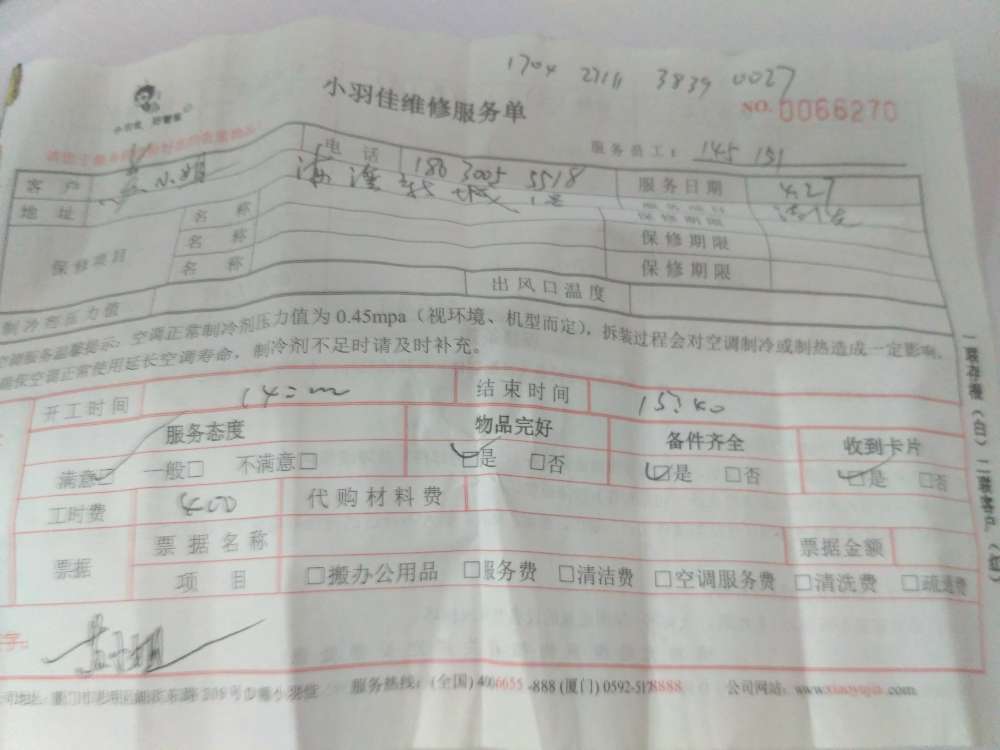 1704 27111 3839 0027
小羽佳维修服务单
NO. 0066270
服务员工: 145 151
客户 小姐 电话 186 3005 5518 服务日期 4.27
地址
保修项目 名称 保修期限
名称 保修期限
名称 保修期限
制冷剂压力值 出风口温度
空调服务温馨提示:空调正常制冷剂压力值为 0.45mpa(视环境、机型而定),拆装过程会对空调制冷或制热造成一定影响,
确保空调正常使用延长空调寿命,制冷剂不足时请及时补充。
开工时间 结束时间 15:40
服务态度 物品完好 备件齐全 收到卡片
满意☑ 一般□ 不满意□ ☑是 □否 ☑是 □否 ☑是 □否
工时费 400 代购材料费
票据 票据名称 票据金额
项目 □搬办公用品 □服务费 □清洁费 □空调服务费 □清洗费 □疏通费
服务热线:(全国) 4006655-888 (厦门) 0592-5178888 公司网站:www.xiaoyujia.com